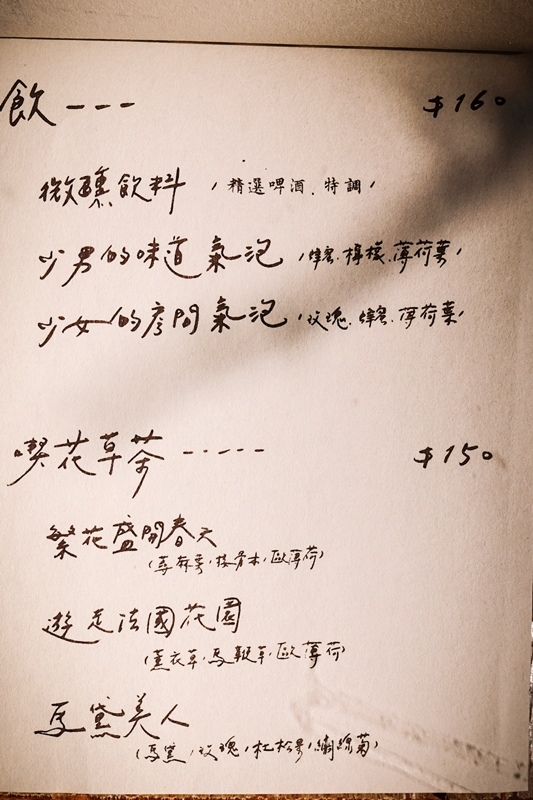 飲--- $160
微醺飲料 ,精選啤酒.特調,
少男的味道氣泡 ,蜂蜜.檸檬.薄荷葉,
少女的房間氣泡 ,玫瑰.蜂蜜.薄荷葉,
喫花草茶----- $150
繁花盛開春天
(蕁麻葉,接骨木,歐薄荷)
遊走法國花園
(薰衣草,馬鞭草,歐薄荷)
馬黛美人
(馬黛,玫瑰,杜松果,綢緞菊)